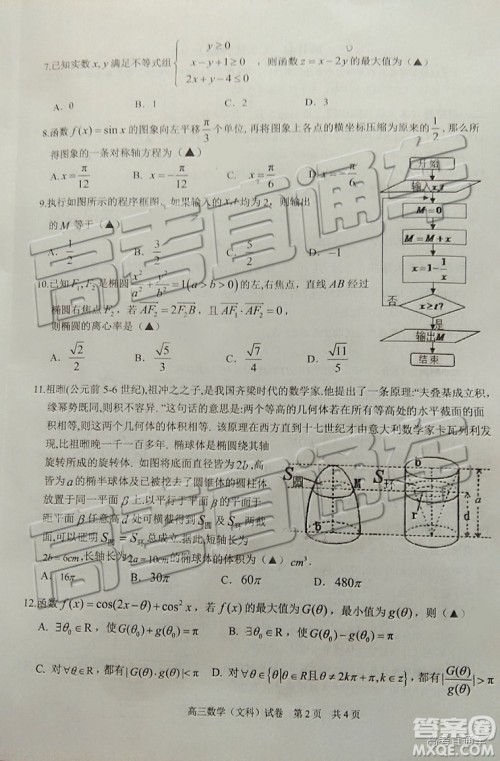 7.已知实数 x, y 满足不等式组 { y≥0
x-y+1≥0
2x+y-4≤0 , 则函数 z=x-2y 的最大值为（▲）
A. 0 B. 1 C. 2 D. 4
8.函数 f(x)=sin x 的图象向左平移 π/3 个单位, 再将图象上各点的横坐标压缩为原来的 1/2, 那么所
得图象的一条对称轴方程为（▲）
A. x=π/12 B. x=-π/12 C. x=π/6 D. x=-π/6
9.执行如图所示的程序框图, 如果输入的 x,t 均为 2, 则输出
的 M 等于（▲）
A. 1/2 B. 3/2 C. 5/2 D. -1
开始
输入x,t
M=0
M=M+x
x=1-1/x
x≥t?
否
是
输出M
结束
10.已知 F₁,F₂ 是椭圆 x²/a²+y²/b²=1(a>b>0) 的左,右焦点, 直线 AB 经过
椭圆右焦点 F₂. 若 AF₂=2F₂B, 且 AF₁·AF₂=0,
则椭圆的离心率是（▲）
A. √2/2 B. √5/3 C. √7/4 D. √11/5
11.祖暅(公元前 5-6 世纪),祖冲之之子,是我国齐梁时代的数学家.他提出了一条原理:“夫叠基成立积,
缘幂势既同,则积不容异. ”这句话的意思是:两个等高的几何体若在所有等高处的水平截面的面
积相等,则这两个几何体的体积相等. 该原理在西方直到十七世纪才由意大利数学家卡瓦列利发
现,比祖暅晚一千一百多年. 椭球体是椭圆绕其轴
旋转所成的旋转体. 如图将底面直径皆为 2b, 高皆
为 a 的椭半球体及已被挖去了圆锥体的圆柱体
放置于同一平面 β 上.以平行于平面 β 的平面于
距平面 β 任意高 d 处可横截得到 S圆 及 S环 两截
面,可以证明 S圆=S环 总成立.据此,短轴长为
2b=6cm,长轴长为 2a=10cm 的椭球体的体积为（▲）cm³.
S圆
S环
b
b
M
a
d
r
A. 16π B. 30π C. 60π D. 480π
12.函数 f(x)=cos(2x-θ)+cos²x, 若 f(x) 的最大值为 G(θ), 最小值为 g(θ), 则（▲）
A. ∃θ₀∈R, 使 G(θ₀)+g(θ₀)=π B. ∃θ₀∈R, 使 G(θ₀)-g(θ₀)=π
C. 对∀θ∈R, 都有|G(θ)·g(θ)|<π D. 对∀θ∈{θ|θ∈R且θ≠2kπ+π,k∈Z}, 都有|G(θ)/g(θ)|>π
高三数学（文科）试卷 第 2 页 共 4 页
高考直通车
高考直通车
高考直通车
答案圈